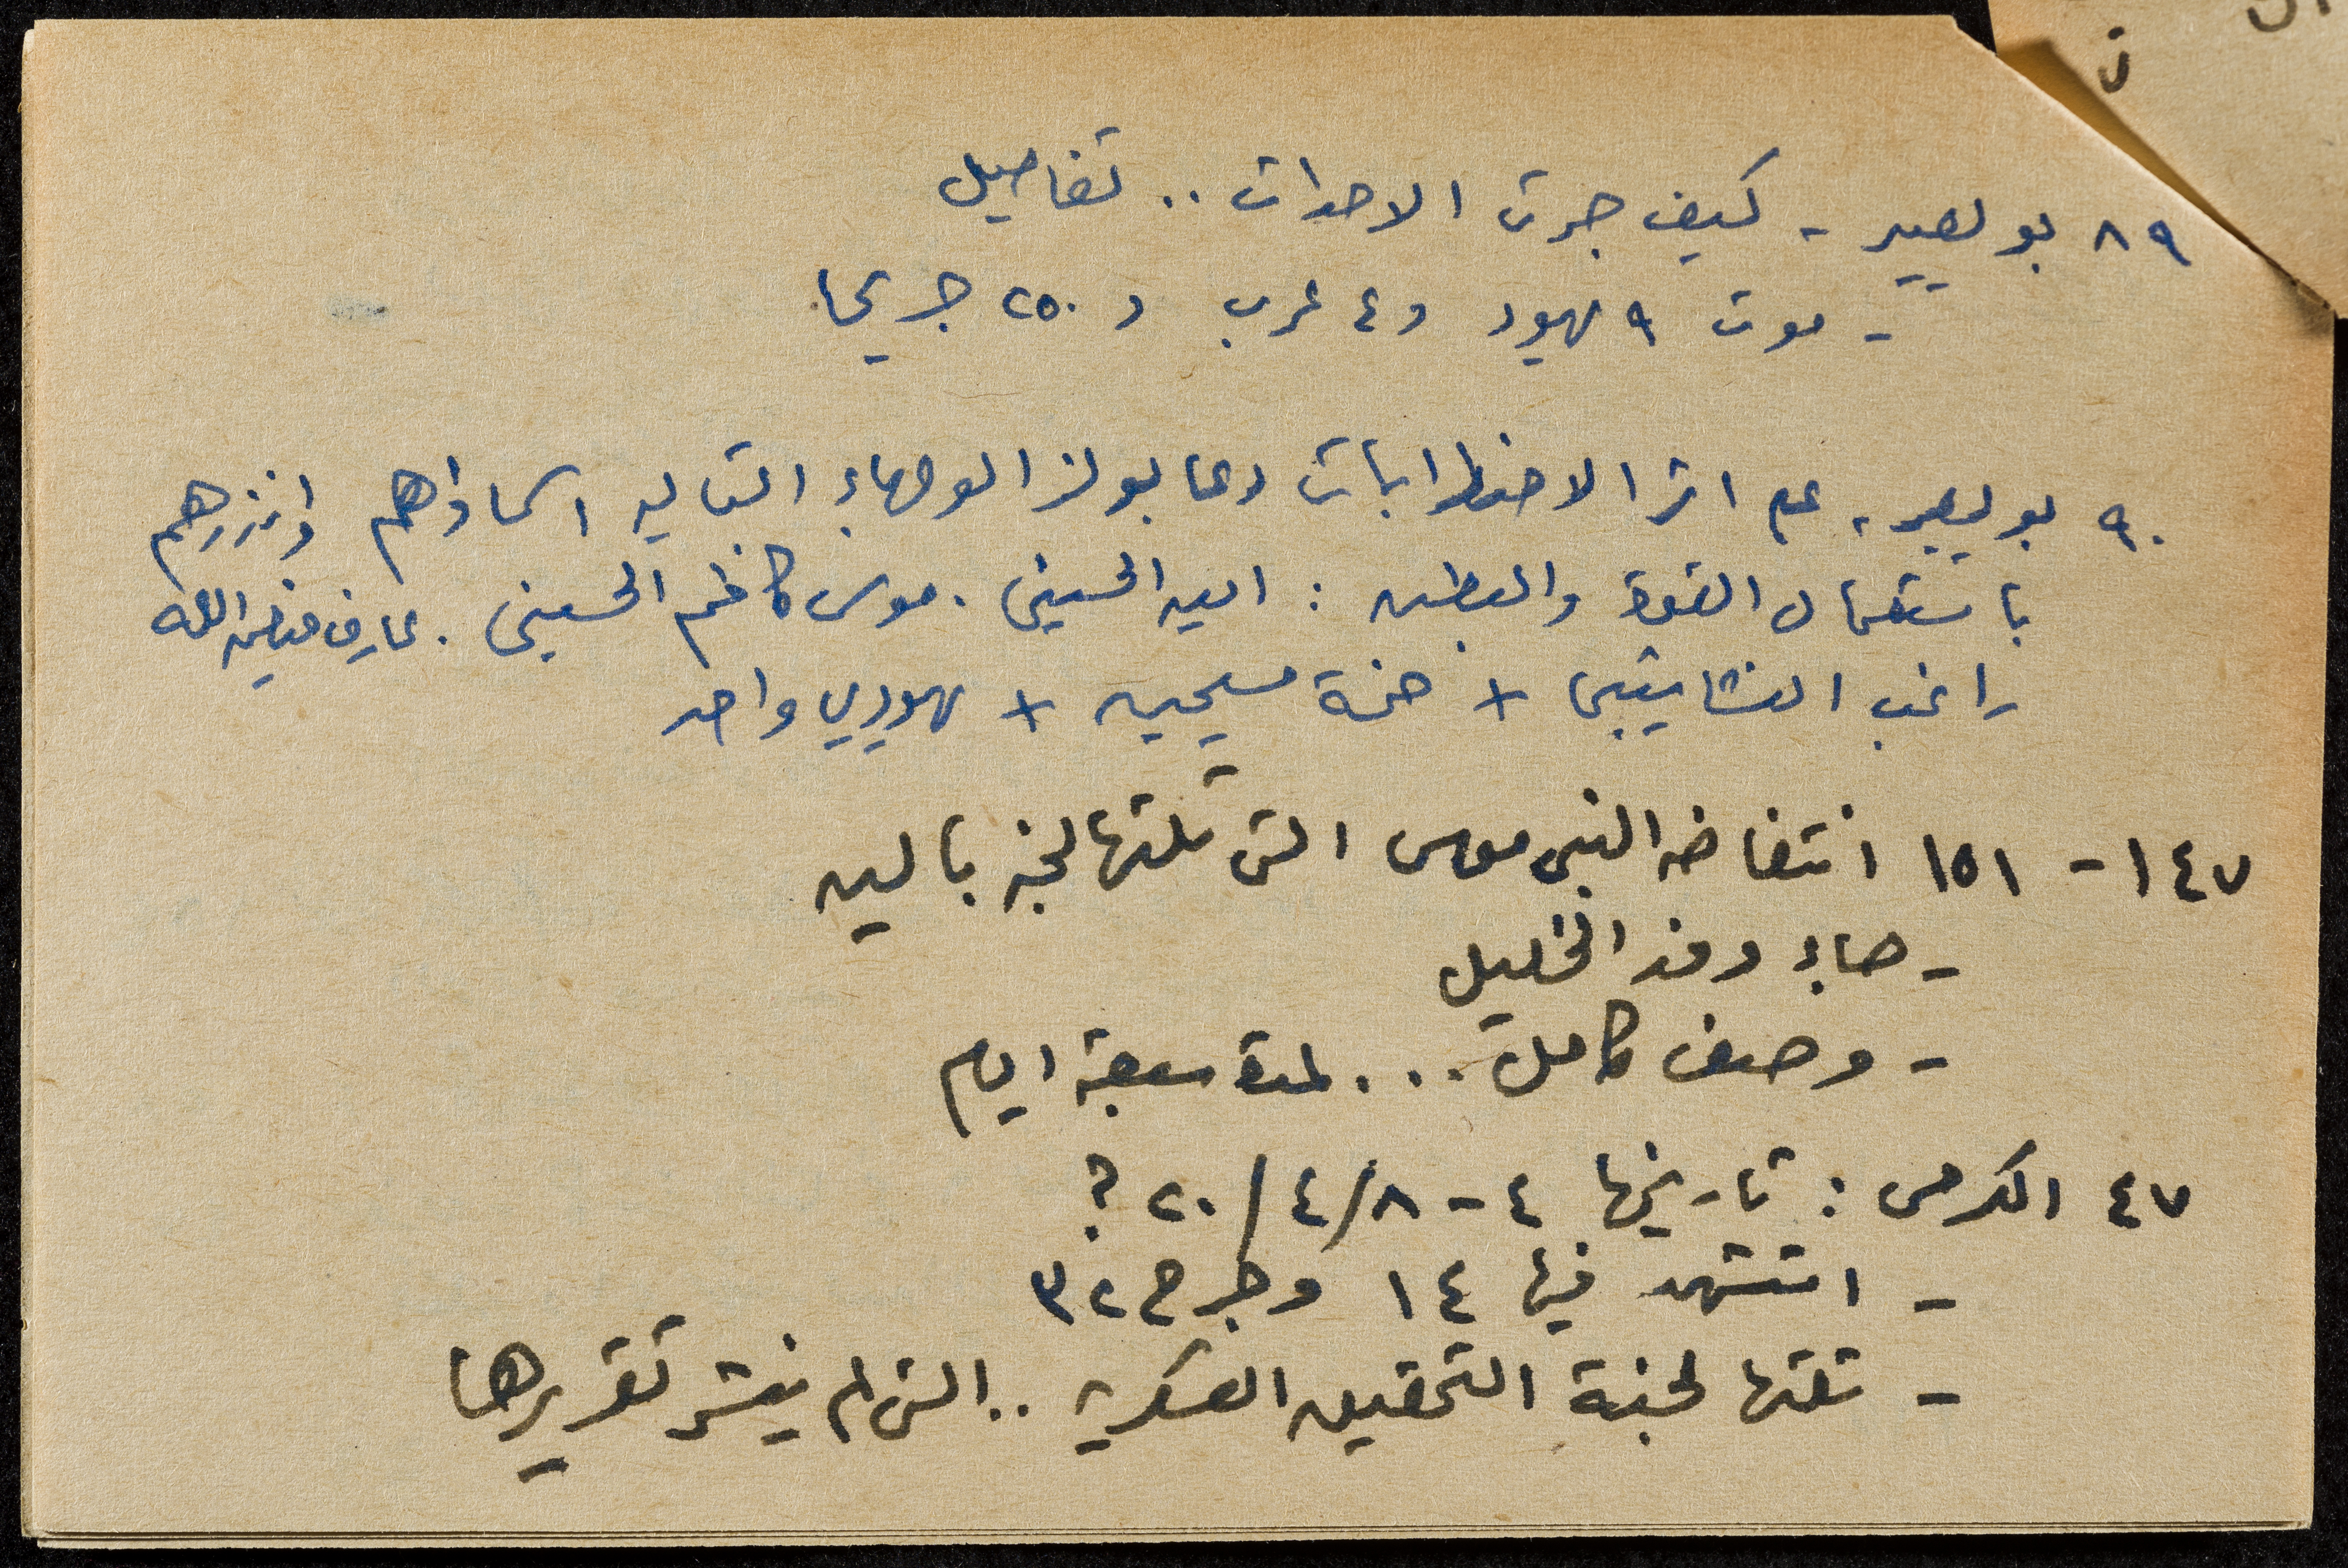 ٨٩ بويصير - كيف جرت الاحداث .. تفاصيل
- موت ٩ يهود و ٤ عرب و ٢٥٠ جريحا
٩٠ بويصير، على اثر الاضطرابات دعا بولز الوجهاء التاليه اسماؤهم وانذرهم
باستعمال القوة والبطش : امين الحسيني . موسى كاظم الحسيني . عارف
راغب النشاشيبي + خمسة مسيحيين + يهودي واحد
١٤٧ - ١٥١ انتفاضه النبي موسى التي تلتها لجنه بالين
- جاء وفد الخليل
- وصف كامل ... لمدة سبعة ايام
٤٧ الكرمى : تاريخها ٤ - ٨/٤/٢٠ ؟
- استشهد فيها ١٤ وجرح ٣٢
- تلتها لجنة التحقيق العسكريه .. التي لم ينشر تقريرها
ن